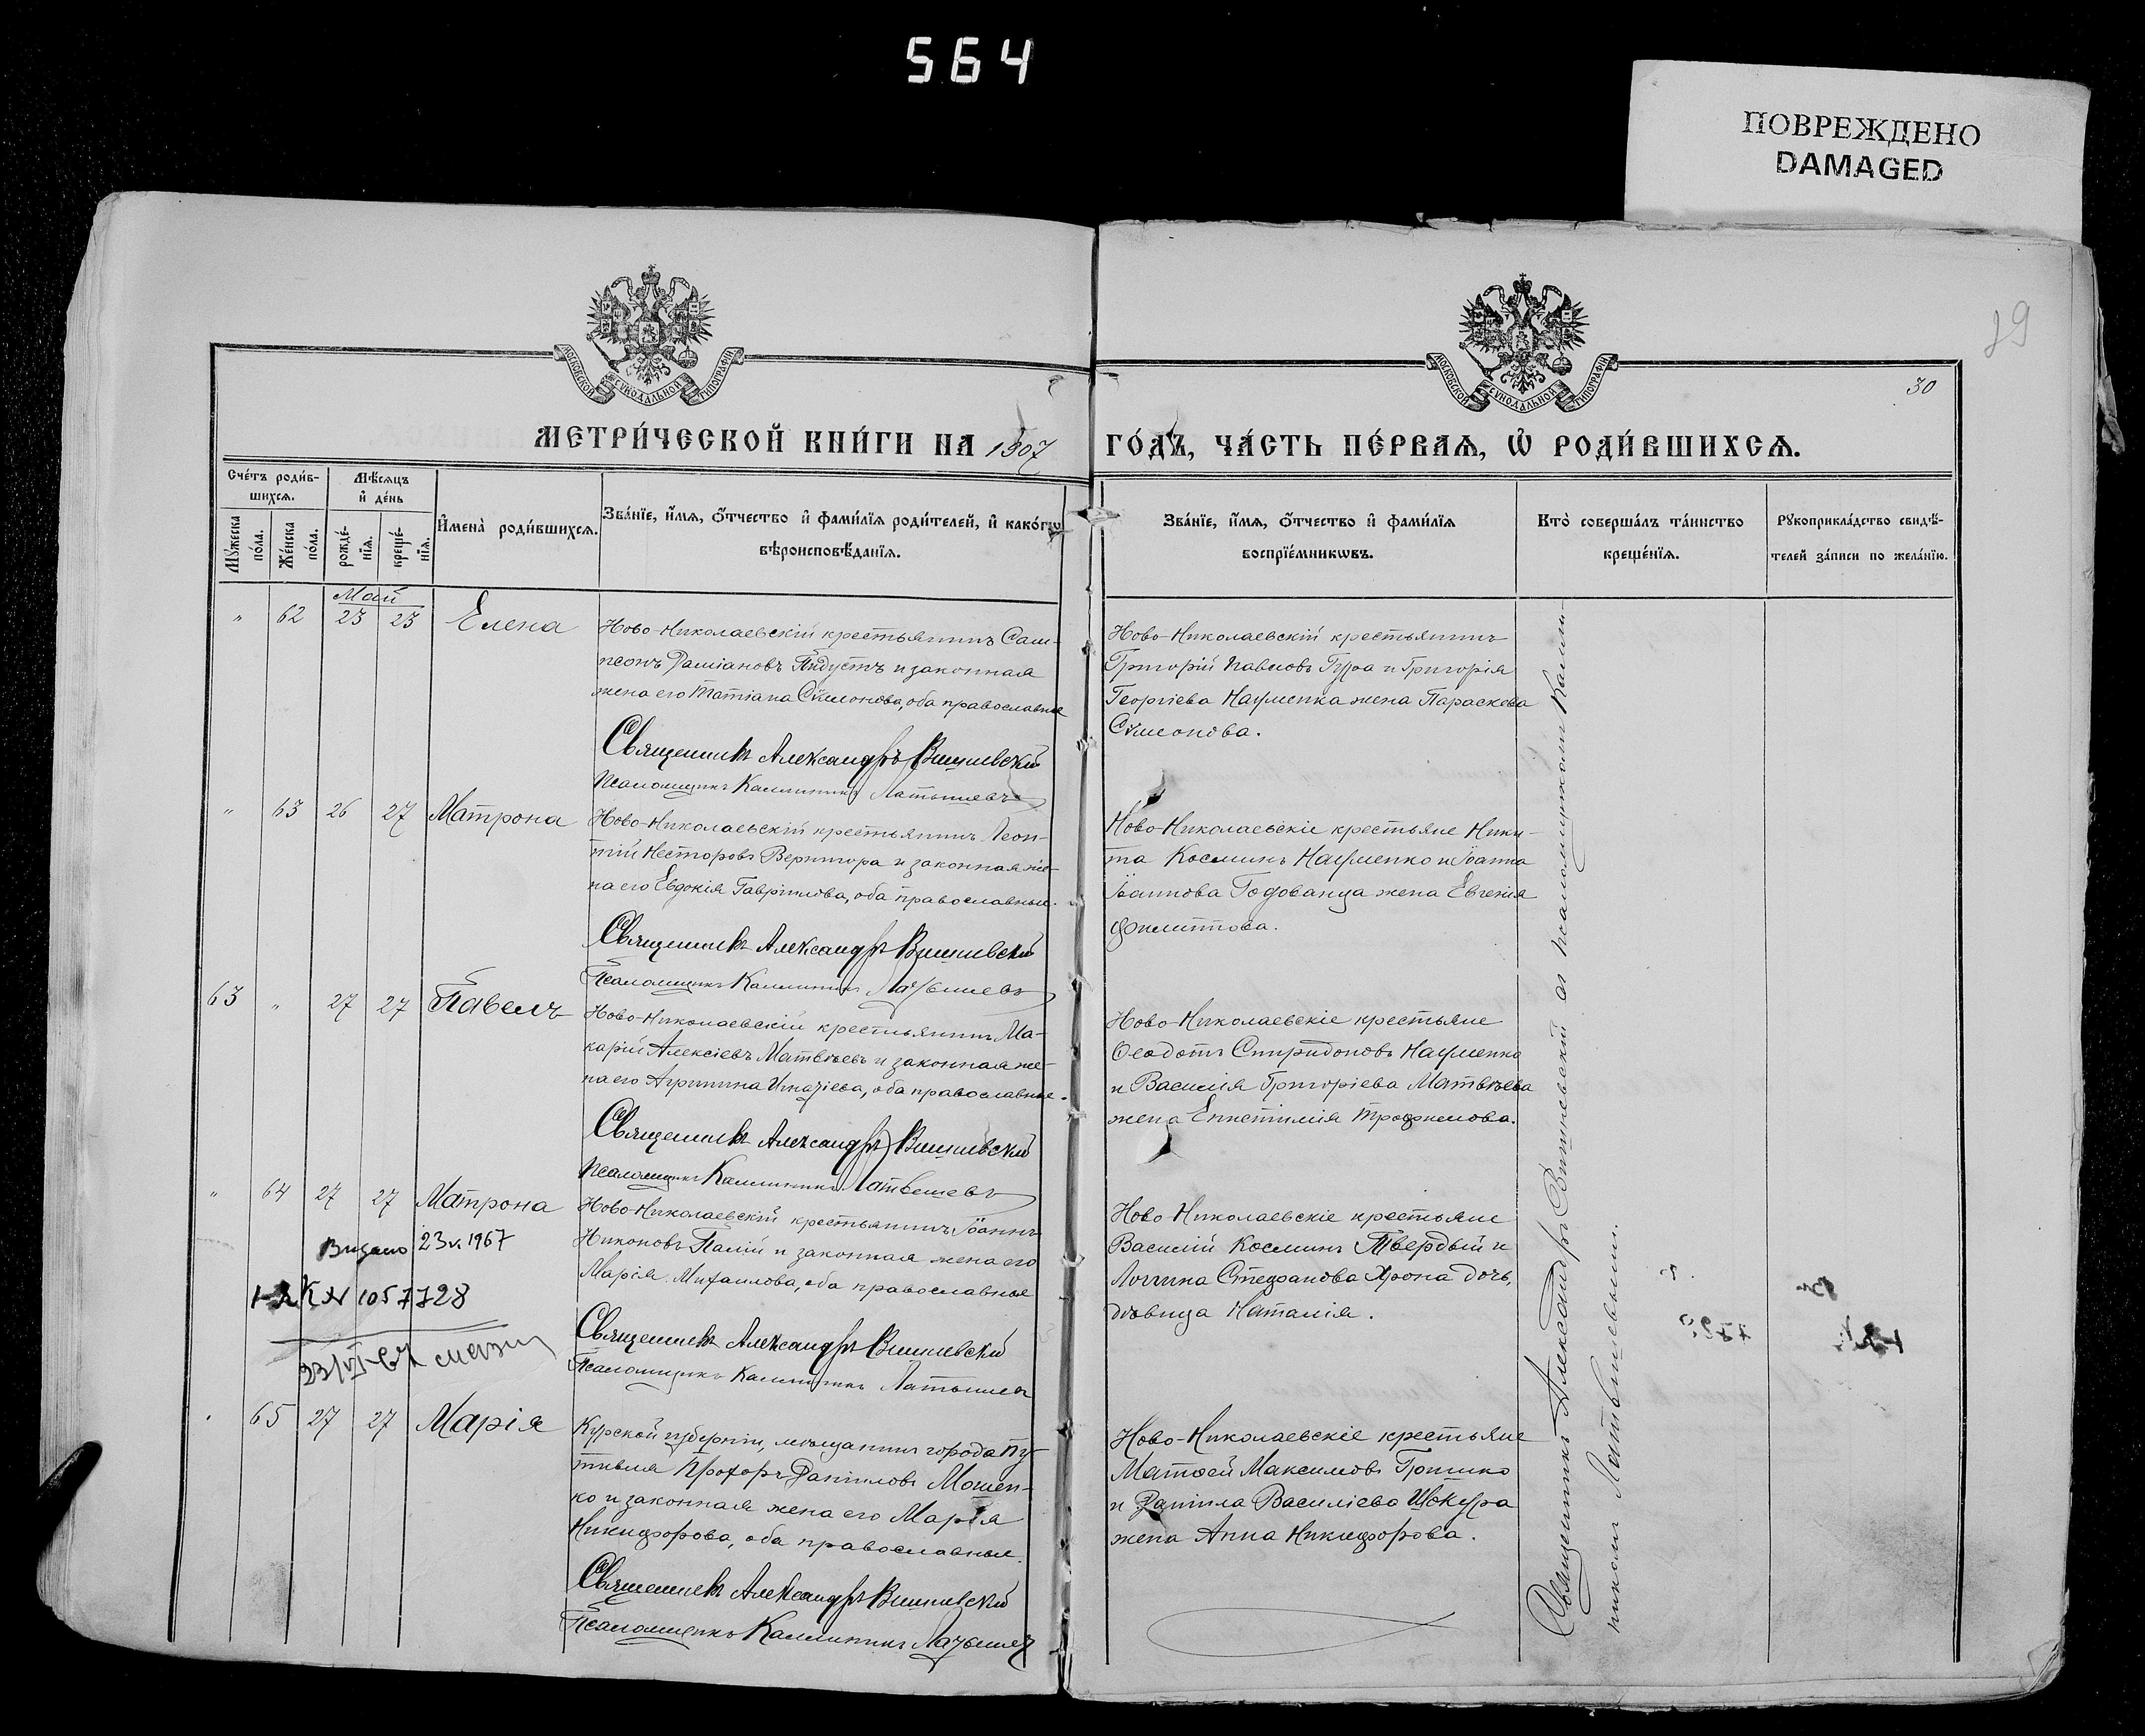 564
ПОВРЕЖДЕНО
DAMAGED
МОСКОВСКОЙ СѴНОДАЛЬНОЙ ТИПОГРАФІИ
МОСКОВСКОЙ СѴНОДАЛЬНОЙ ТИПОГРАФІИ
30
МЕТРИ́ЧЕСКОЙ КНИ́ГИ НА 1907
ГО́ДЪ, ЧА́СТЬ ПЕ́РВАѦ, Ѡ҆ РОДИ́ВШИХСѦ.
Сче́тъ роди́в-
шихсѧ.
Мꙋ́жеска по́ла.
Же́нска по́ла.
Мѣ́сѧцъ
и҆ де́нь
рожде́-
нїѧ.
креще́-
нїѧ.
И҆мена̀ роди́вшихсѧ.
Зва́нїе, и҆́мѧ, ѻ҆́тчество и҆ фами́лїѧ роди́телей, и҆ како́гѡ
вѣроисповѣ́данїѧ.
Зва́нїе, и҆́мѧ, ѻ҆́тчество и҆ фами́лїѧ
воспрїе́мникѡвъ.
Кто̀ соверша́лъ та́инство
креще́нїѧ.
Рꙋкоприкла́дство свидѣ́-
телей за́писи по жела́нїю.
Май
" 62 23 23 Елена
Ново-Николаевскій крестьянинъ Сам-
псонъ Даміановъ Пидустъ и законная
жена его Татіана Сѵмонова, оба православные
Священникъ Александръ Вишневскій
Псаломщикъ Каллиникъ Латышевъ
Ново-Николаевскій крестьянинъ
Григорій Павловъ Гура и Григорія
Георгіева Науменка жена Параскева
Сѵмеонова.
" 63 26 27 Матрона
Ново-Николаевскій крестьянинъ Леон-
тій Несторовъ Вернигора и законная же-
на его Евдокія Гавріилова, оба православные.
Священникъ Александръ Вишневскій
Псаломщикъ Каллиникъ Латышевъ
Ново-Николаевскіе крестьяне Ники-
та Косминъ Науменко и Іоанна
Іоаннова Годованца жена Евгенія
Филиппова.
63 " 27 27 Павелъ
Ново-Николаевскій крестьянинъ Ма-
карій Алексіевъ Матвѣевъ и законная же-
на его Агриппина Игнатіева, оба православные.
Священникъ Александръ Вишневскій
Псаломщикъ Каллиникъ Латышевъ
Ново-Николаевскіе крестьяне
Ѳеодотъ Спиридоновъ Науменко
и Василія Григоріева Матвѣева
жена Епистимія Трофимова.
" 64 27 27 Матрона
Ново-Николаевскій крестьянинъ Іоаннъ
Никоновъ Палій и законная жена его
Марія Михаилова, оба православные
Священникъ Александръ Вишневскій
Псаломщикъ Каллиникъ Латышевъ
Видано 23 v. 1967
1057728
Ново Николаевскіе крестьяне
Василій Косминъ Твердый и
Логгина Стефанова Хрона дочь,
дѣвица Наталія.
65 27 27 Марія
Курской губерніи, мѣщанинъ города Пу-
тивля Прохоръ Даніиловъ Мошен-
ко и законная жена его Марія
Никифорова, оба православные.
Священникъ Александръ Вишневскій
Псаломщикъ Каллиникъ Латышевъ
Ново-Николаевскіе крестьяне
Матѳей Максимовъ Гришко
и Даніила Василіева Щокура
жена Анна Никифорова.
Священникъ Александръ Вишневскій съ псаломщикомъ Калли-
никомъ Латышевымъ.